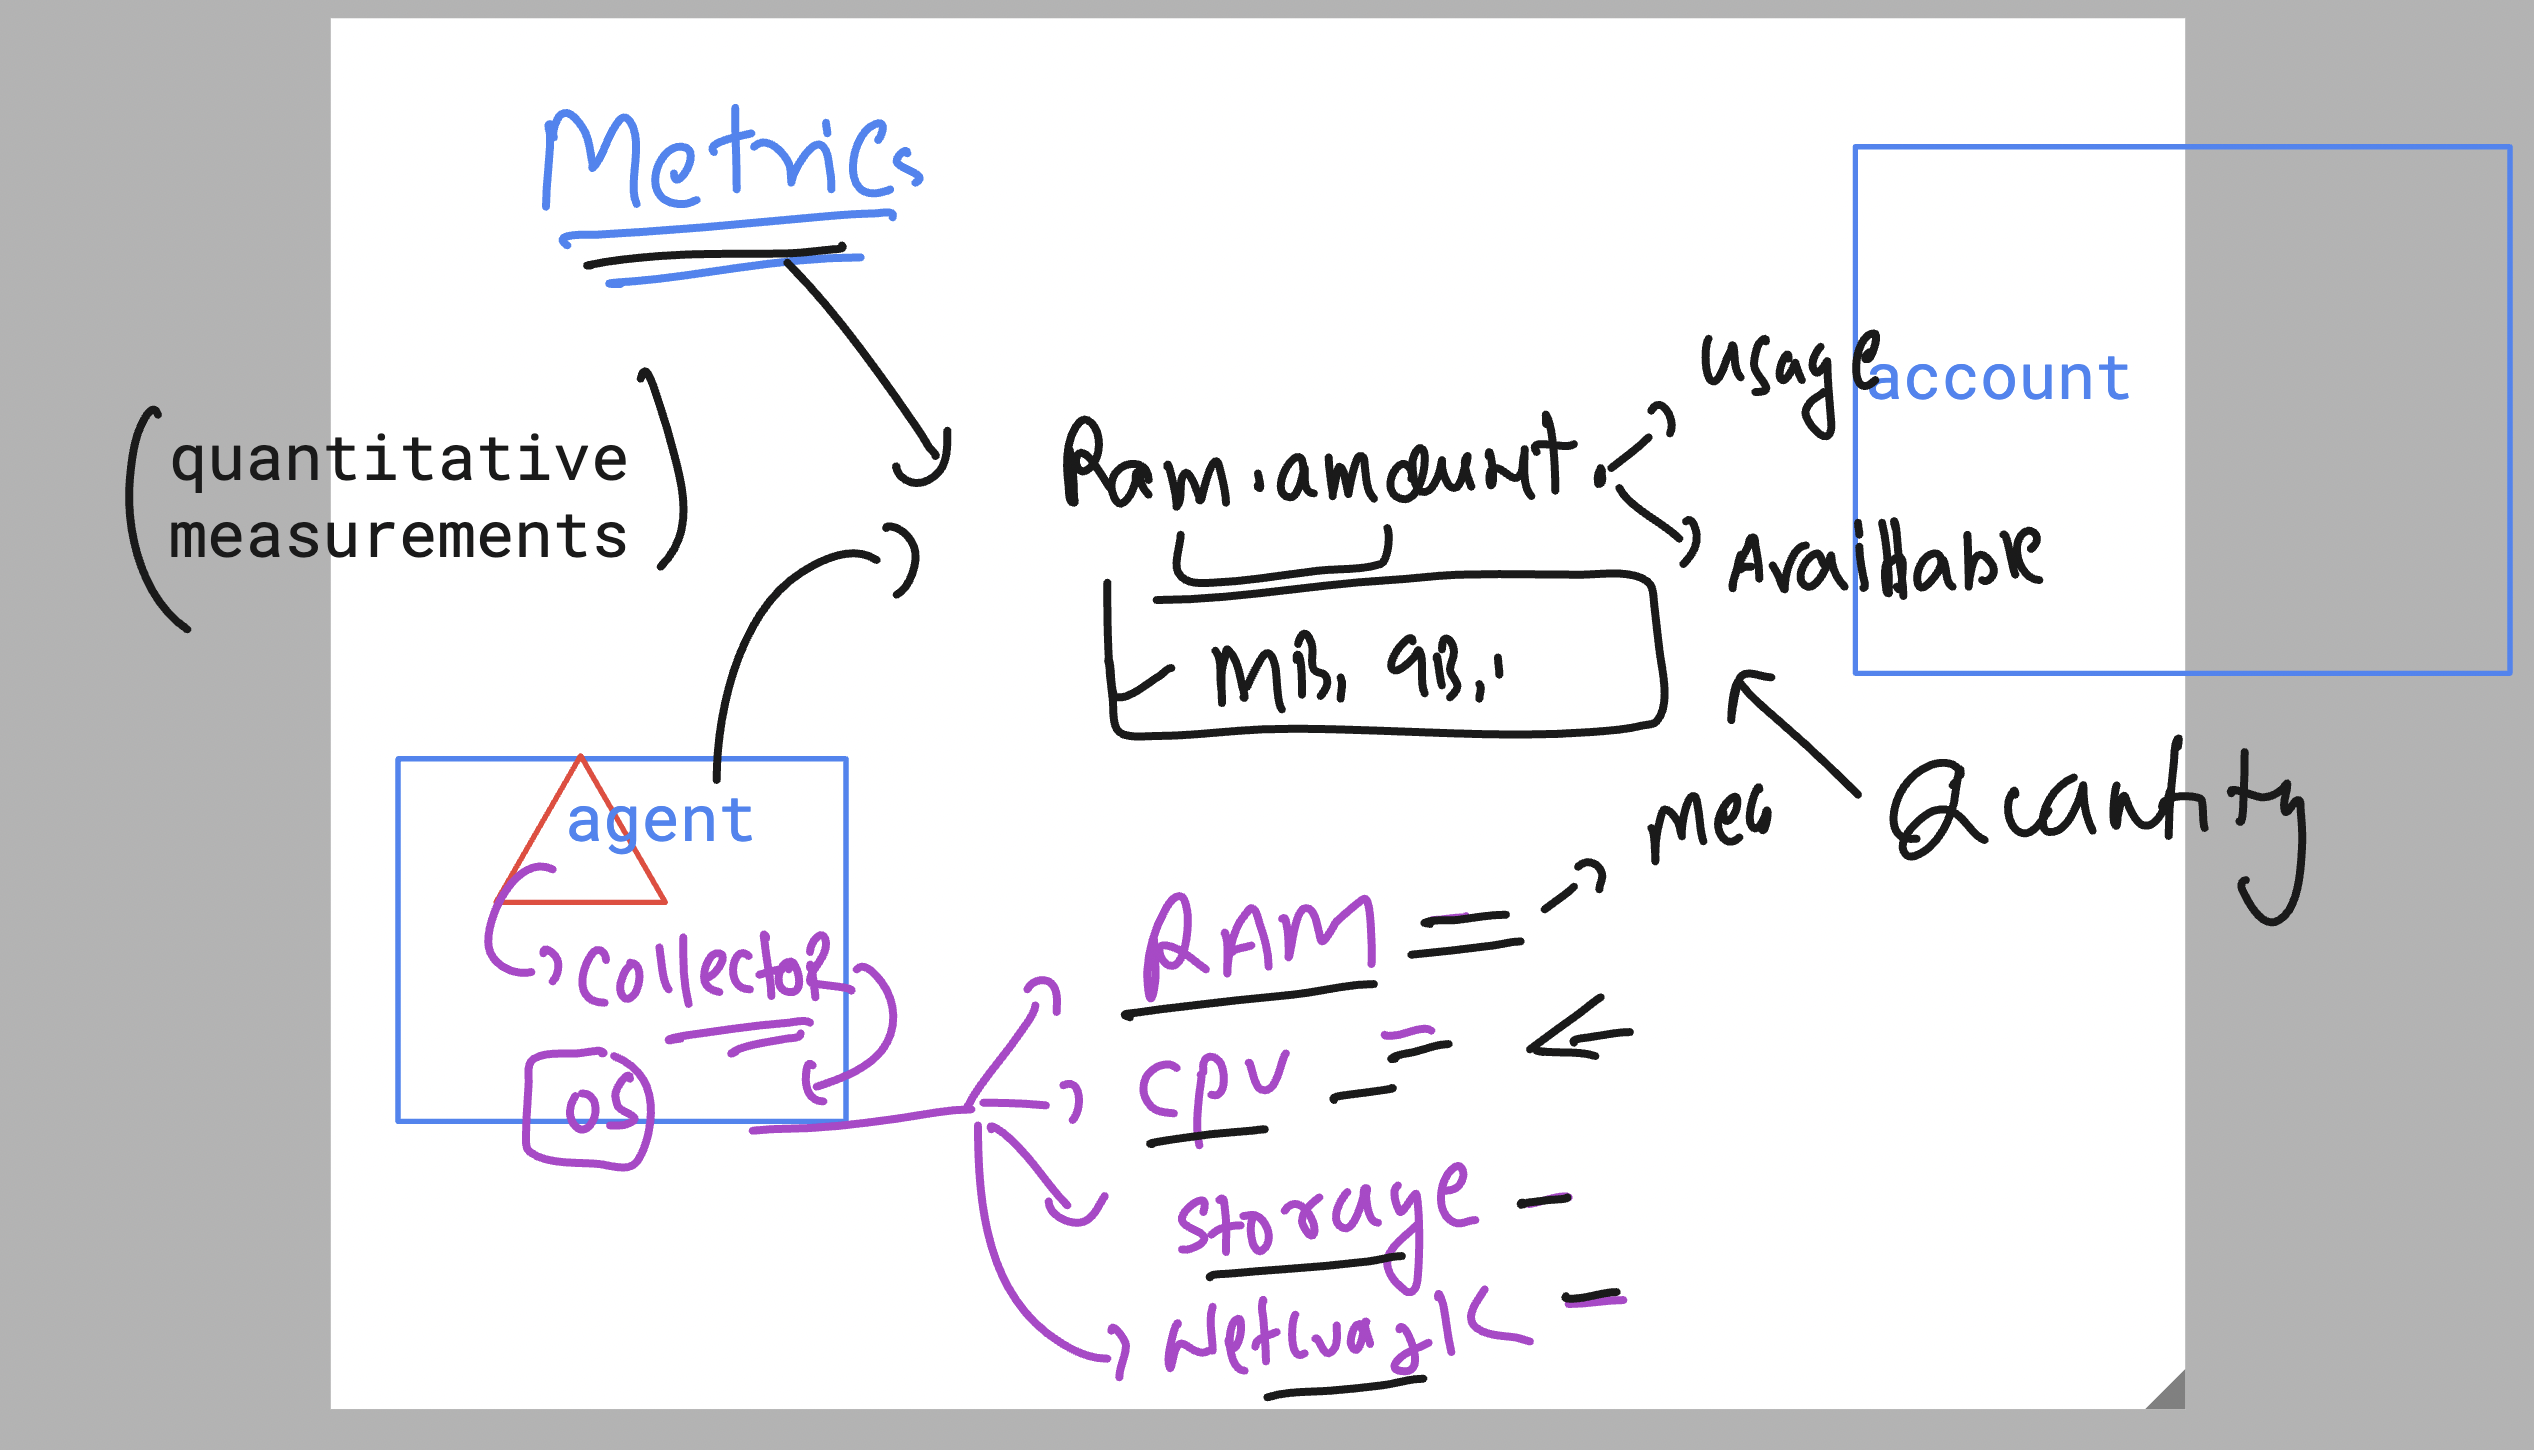 Metrics
quantitative
measurements
Ram.amount.
usage
account
Available
MB, GB,
Quantity
mea
agent
collector
OS
RAM
CPU
storage
Network